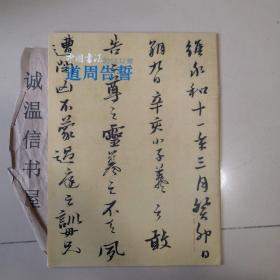 維永和十一年三月癸卯日
朔九日辛亥小子羲之敢
告二尊之靈羲之不天夙
遭閔凶不蒙過庭之訓兄
中国书法
道周告誓
诚温信书屋